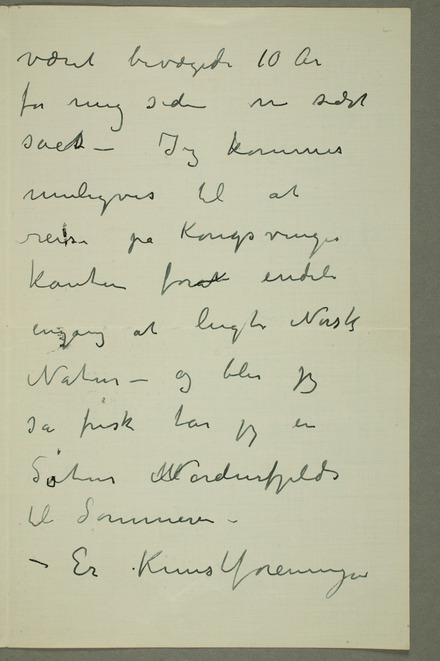 været bevægede 10 År
for mig siden vi sidst
saaes – Jeg kommer
muligvis til at
reise på Kongsvinger
kanten for endelig
engang at lugte Norsk
Natur – og blir jeg
så frisk tar jeg en
Søtur Nordenfjelds
til Sommeren –
– Er Kunstforeningen